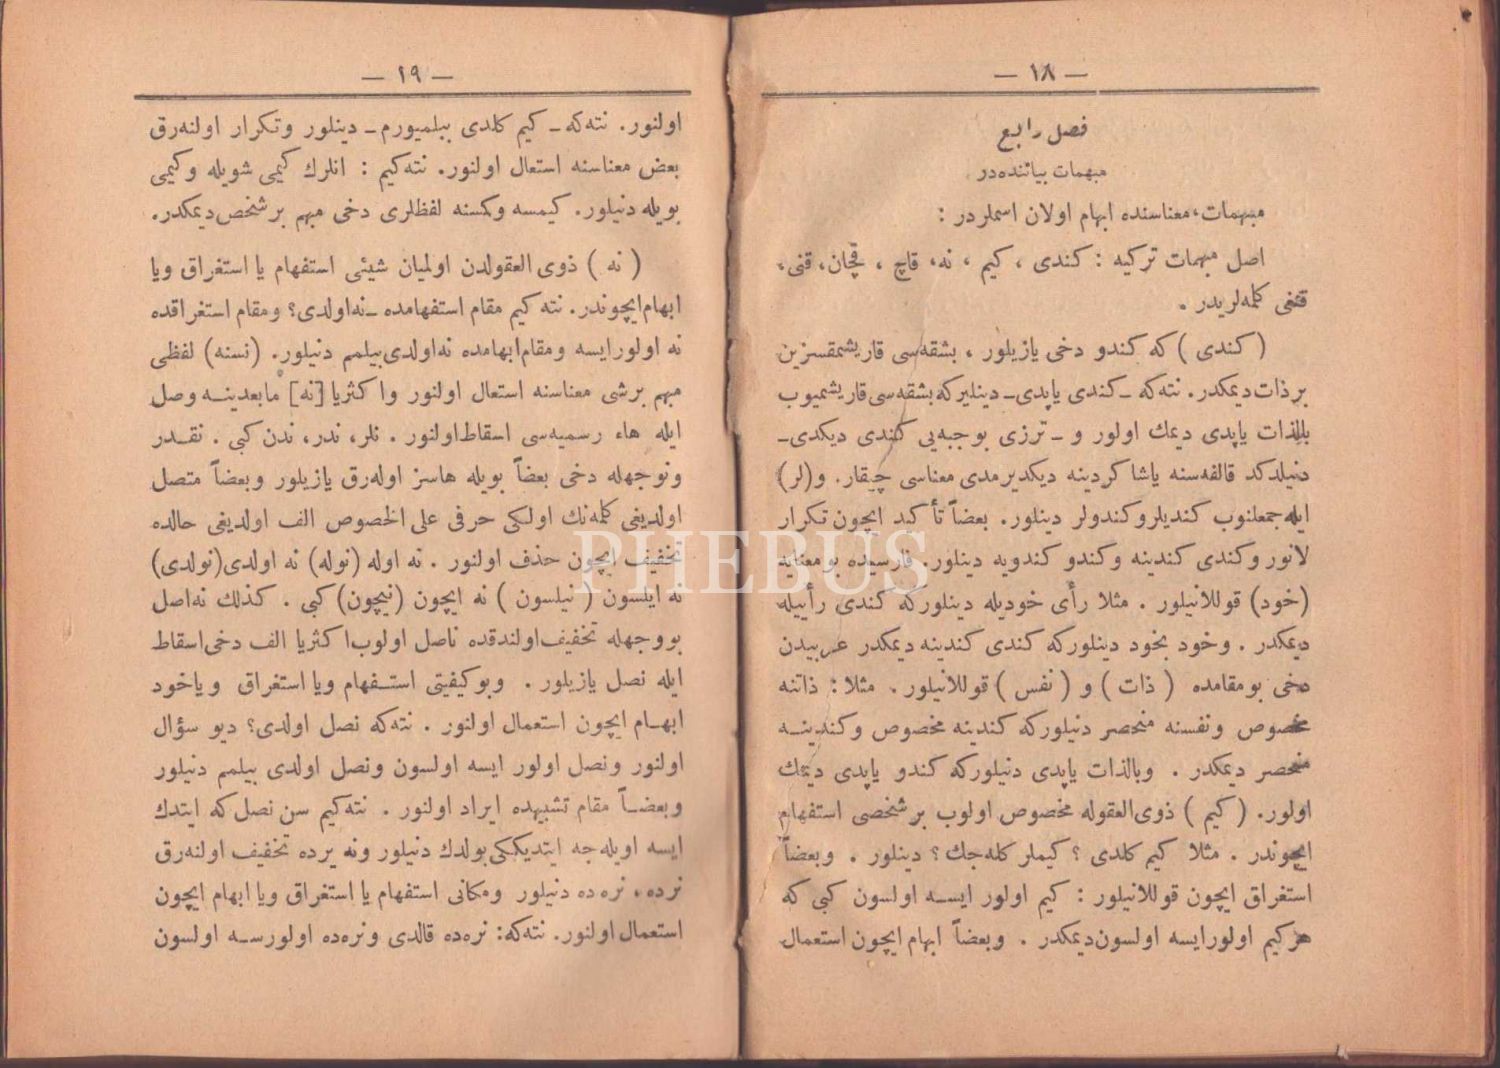 — ١٨ —
فصل رابع
مبهمات بياننده‌در
مبهمات، معناسنده ابهام اولان اسملردر :
اصل مبهمات تركيه : كندى ، كيم ، نه، قاچ ، قچان، قنى،
قنغى كلمه‌لريدر .
( كندى ) كه كندو دخى يازيلور ، بشقه‌سى قاريشمقسزين
بر ذات ديمكدر. نته‌كه ـ كندى ياپدى ـ دينليركه بشقه‌سى قاريشميوب
بالذات ياپدى ديمك اولور و ـ ترزى بو جبه‌يى كندى ديكدى ـ
دنيلدكد قالفه‌سنه ياشاكردينه ديكديرمدى معناسى چيقار. و(لر)
ايله جمعلنوب كنديلر وكندولر دينلور. بعضاً تأكيد ايچون تكرار
لانور وكندى كندينه وكندو كندويه دينلور. فارسيده بو معنايه
(خود) قوللانيلور . مثلا رأى خوديله دينلوركه كندى رأييله
ديمكدر . وخود بخود دينلوركه كندى كندينه ديمكدر عربيدن
دخى بومقامده ( ذات ) و ( نفس ) قوللانيلور . مثلا : ذاتنه
مخصوص ونفسنه منحصر دنيلوركه كندينه مخصوص وكندينـه
منحصر ديمكدر . وبالذات ياپدى دنيلوركه كندو ياپدى ديمك
اولور. ( كيم ) ذوى العقوله مخصوص اولوب بر شخصى استفهام
ايچوندر . مثلا كيم كلدى ؟ كيملر كله‌جك ؟ دينلور . وبعضاً
استغراق ايچون قوللانيلور : كيم اولور ايسـه اولسون كبى كه
هركيم اولورايسه اولسون ديمكدر . وبعضاً ابهام ايچون استعمال
— ١٩ —
اولنور. نته‌كه ـ كيم كلدى بيلميورم ـ دينلور وتكرار اولنه‌رق
بعض معناسنه استعمال اولنور. نته‌كيم : انلرك كيمى شويله وكيمى
بويله دنيلور. كيمسه وكمسنه لفظلرى دخى مبهم بر شخص ديمكدر.
( نه ) ذوى العقولدن اولميان شيئى استفهام يا استغراق ويا
ابهام‌ايچوندر. نته‌كيم مقام استفهامده ـ نه‌اولدى؟ ومقام استغراقده
نه اولورايسه ومقام‌ابهامده نه‌اولدى‌بيلمم دنيلور. (نسنه) لفظى
مبهم برشى معناسنه استعمال اولنور واكثريا [نه] مابعدينـه وصل
ايله هاء رسميه‌سى اسقاط‌اولنور . نلر، ندر، ندن كبى . نقـدر
ونوجهله دخى بعضاً بويله هاسز اوله‌رق يازيلور وبعضاً متصل
اولديغى كلمه‌نك اولكى حرفى على الخصوص الف اولديغى حالده
تخفيف ايچون حذف اولنور . نه اوله (نوله) نه اولدى(نولدى)
نه ايلسون ( نيلسون ) نه ايچون (نيچون) كبى . كذلك نه‌اصل
بووجهله تخفيف‌اولندقده ناصل اولوب‌اكثريا الف دخى‌اسقاط
ايله نصل يازيلور . وبوكيفيتى استـفهام ويا استغراق وياخود
ابهـام ايچون استعمال اولنور . نته‌كه نصل اولدى؟ ديو سؤال
اولنور ونصل اولور ايسه اولسون ونصل اولدى بيلمم دنيلور
وبعضـاً مقام تشبيهده ايراد اولنور . نته‌كيم سن نصل كه ايتدك
ايسه اويله‌جه ايتديككى‌بولدك دنيلور ونه يرده تخفيف اولنه‌رق
نرده، نره‌ده دنيلور ومكانى استفهام يا استغراق ويا ابهام ايچون
استعمال اولنور. نته‌كه: نره‌ده قالدى ونره‌ده اولورسـه اولسون
PHEBUS